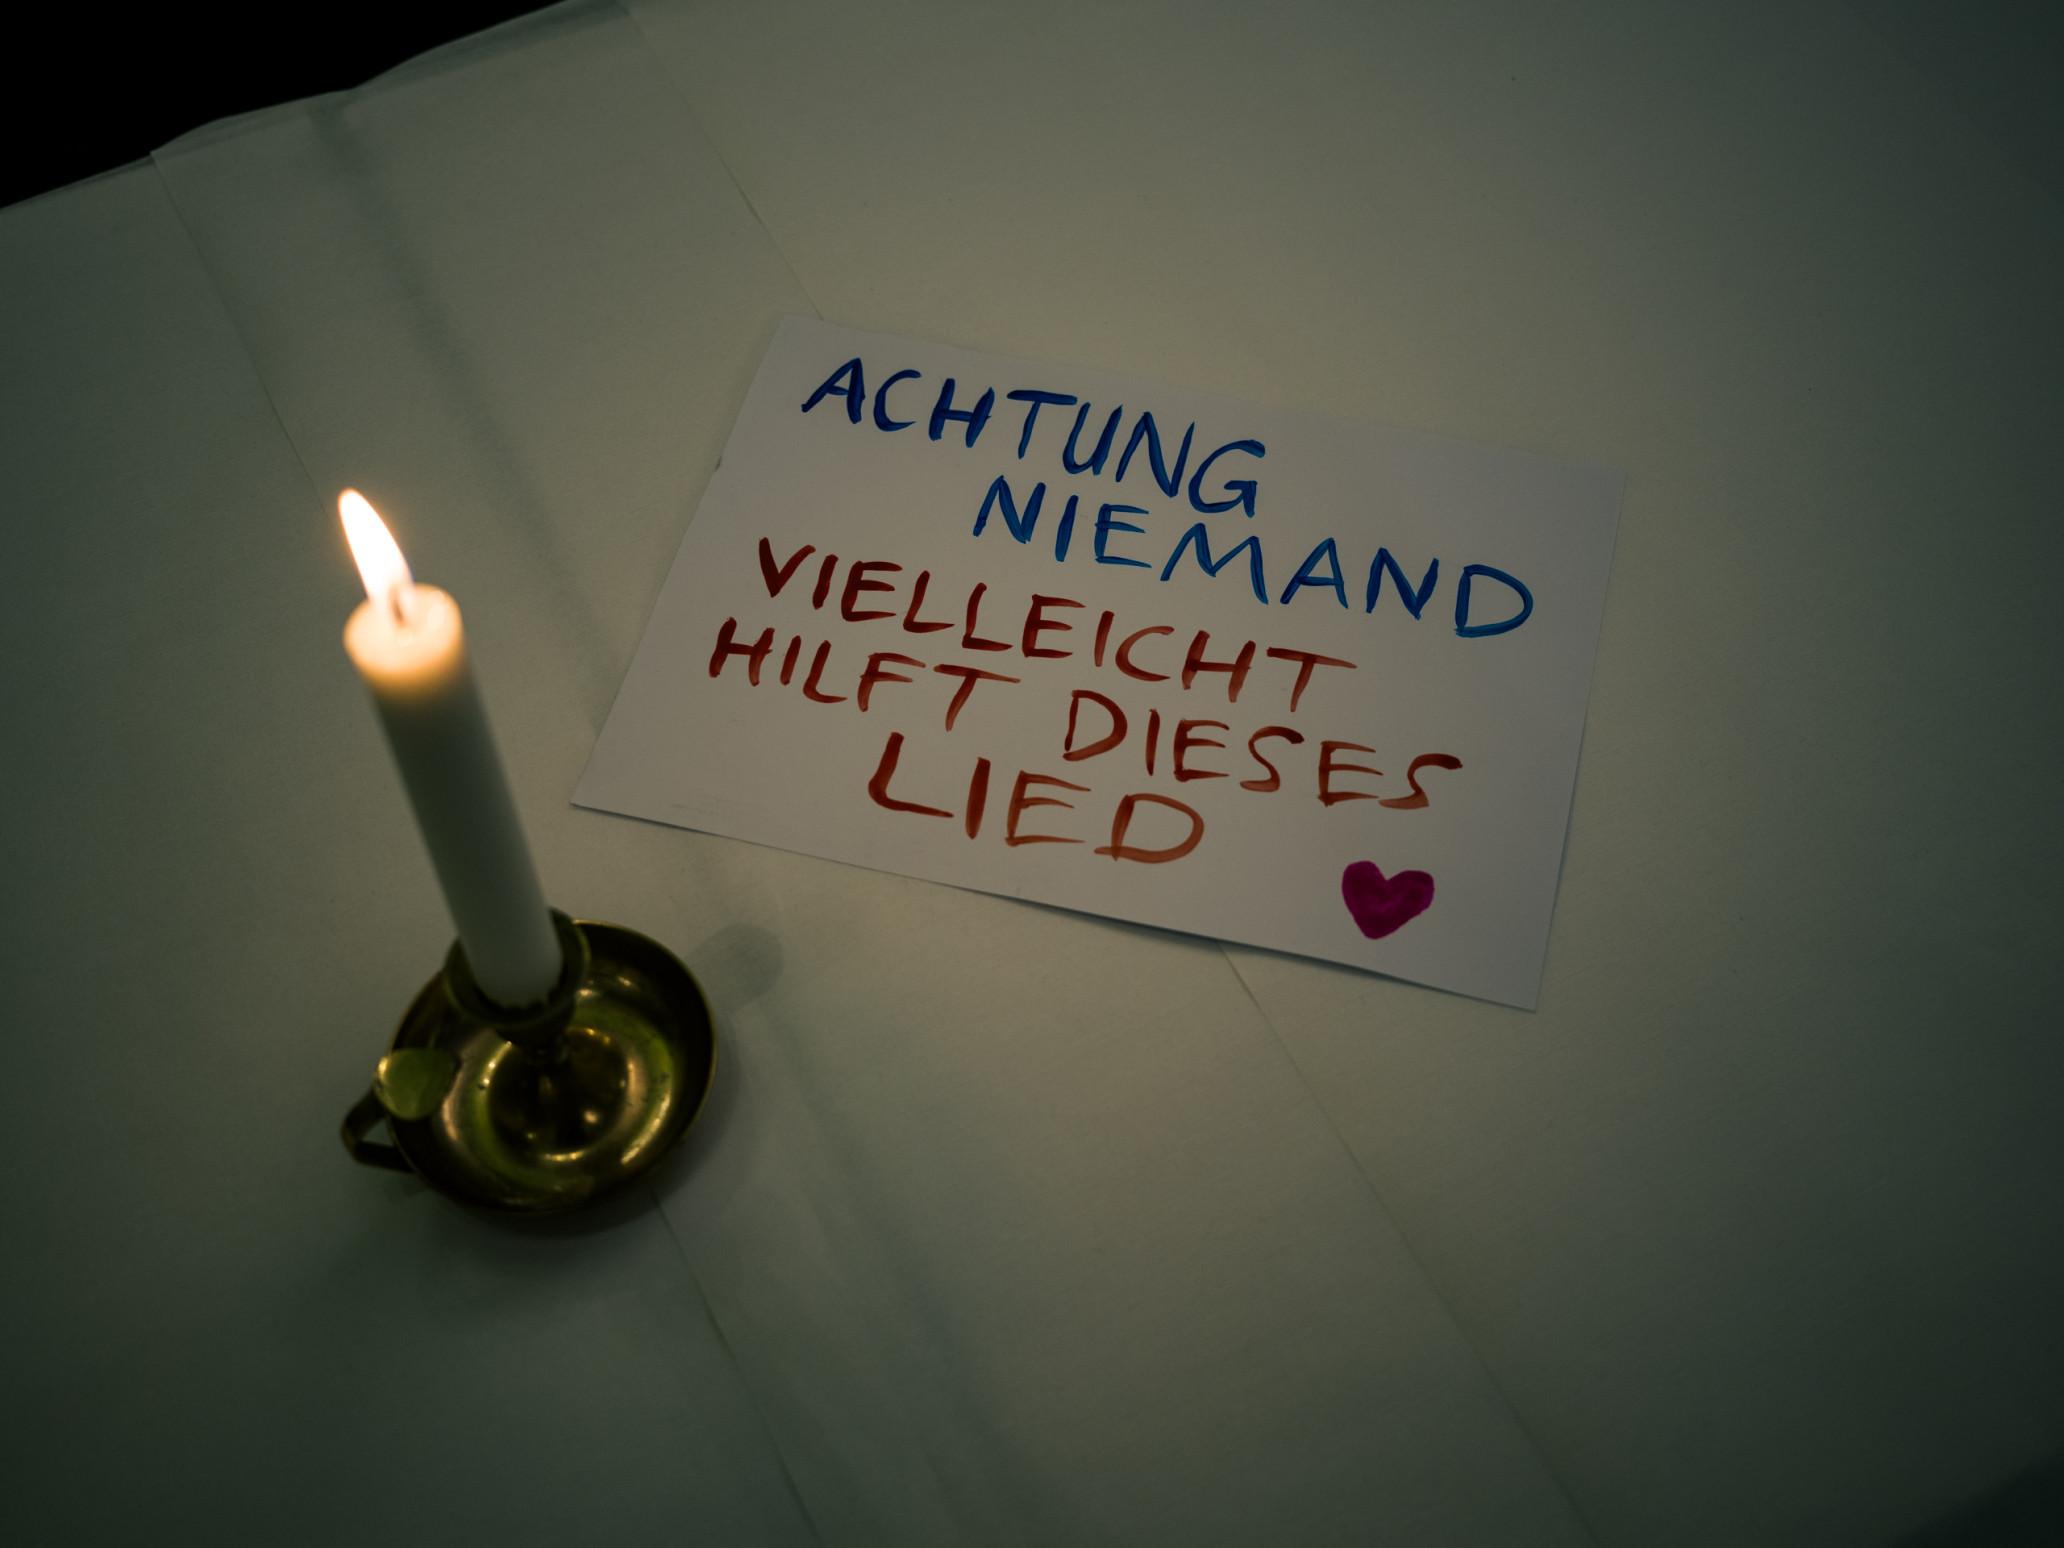 ACHTUNG
NIEMAND
VIELLEICHT
HILFT DIESES
LIED